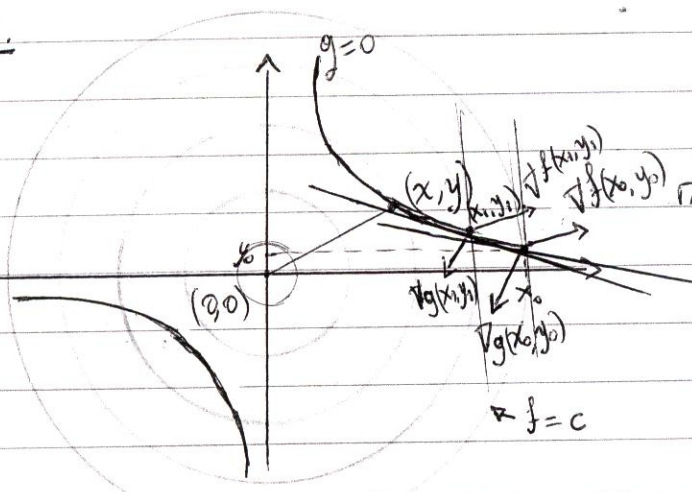 g=0
(x,y)
(x₁,y₁)
∇f(x₁,y₁)
∇f(x₀,y₀)
y₀
(0,0)
∇g(x₁,y₁)
x₀
∇g(x₀,y₀)
f=c